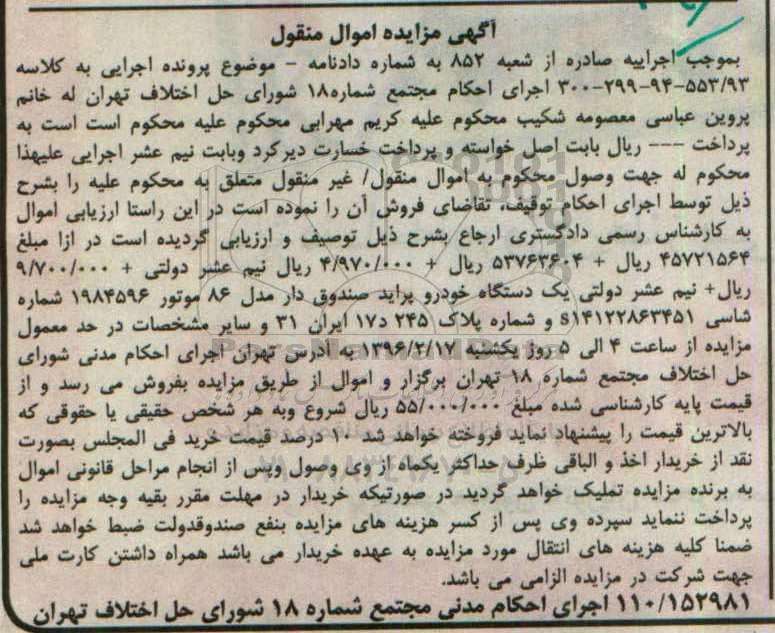 آگهی مزایده اموال منقول
بموجب اجراییه صادره از شعبه ۸۵۲ به شماره دادنامه - موضوع پرونده اجرایی به کلاسه
۳۰۰-۲۹۹-۹۴-۵۵۳/۹۳ اجرای احکام مجتمع شماره۱۸ شورای حل اختلاف تهران له خانم
پروین عباسی معصومه شکیب محکوم علیه کریم مهرابی محکوم علیه محکوم است است به
پرداخت --- ریال بابت اصل خواسته و پرداخت خسارت دیرکرد وبابت نیم عشر اجرایی علیهذا
محکوم له جهت وصول محکوم به اموال منقول/ غیر منقول متعلق به محکوم علیه را بشرح
ذیل توسط اجرای احکام توقیف، تقاضای فروش آن را نموده است در این راستا ارزیابی اموال
به کارشناس رسمی دادگستری ارجاع بشرح ذیل توصیف و ارزیابی گردیده است در ازا مبلغ
۴۵۷۲۱۵۶۴ ریال + ۵۳۷۶۳۶۰۴ ریال + ۴/۹۷۰/۰۰۰ ریال نیم عشر دولتی + ۹/۷۰۰/۰۰۰
ریال+ نیم عشر دولتی یک دستگاه خودرو پراید صندوق دار مدل ۸۶ موتور ۱۹۸۴۵۹۶ شماره
شاسی s۱۴۱۲۲۸۶۳۴۵۱ و شماره پلاک ۲۴۵ د۱۷ ایران ۳۱ و سایر مشخصات در حد معمول
مزایده از ساعت ۴ الی ۵ روز یکشنبه ۱۳۹۶/۲/۱۷ به ادرس تهران اجرای احکام مدنی شورای
حل اختلاف مجتمع شماره ۱۸ تهران برگزار و اموال از طریق مزایده بفروش می رسد و از
قیمت پایه کارشناسی شده مبلغ ۵۵/۰۰۰/۰۰۰ ریال شروع وبه هر شخص حقیقی یا حقوقی که
بالاترین قیمت را پیشنهاد نماید فروخته خواهد شد ۱۰ درصد قیمت خرید فی المجلس بصورت
نقد از خریدار اخذ و الباقی ظرف حداکثر یکماه از وی وصول وپس از انجام مراحل قانونی اموال
به برنده مزایده تملیک خواهد گردید در صورتیکه خریدار در مهلت مقرر بقیه وجه مزایده را
پرداخت ننماید سپرده وی پس از کسر هزینه های مزایده بنفع صندوقدولت ضبط خواهد شد
ضمنا کلیه هزینه های انتقال مورد مزایده به عهده خریدار می باشد همراه داشتن کارت ملی
جهت شرکت در مزایده الزامی می باشد.
۱۱۰/۱۵۲۹۸۱ اجرای احکام مدنی مجتمع شماره ۱۸ شورای حل اختلاف تهران